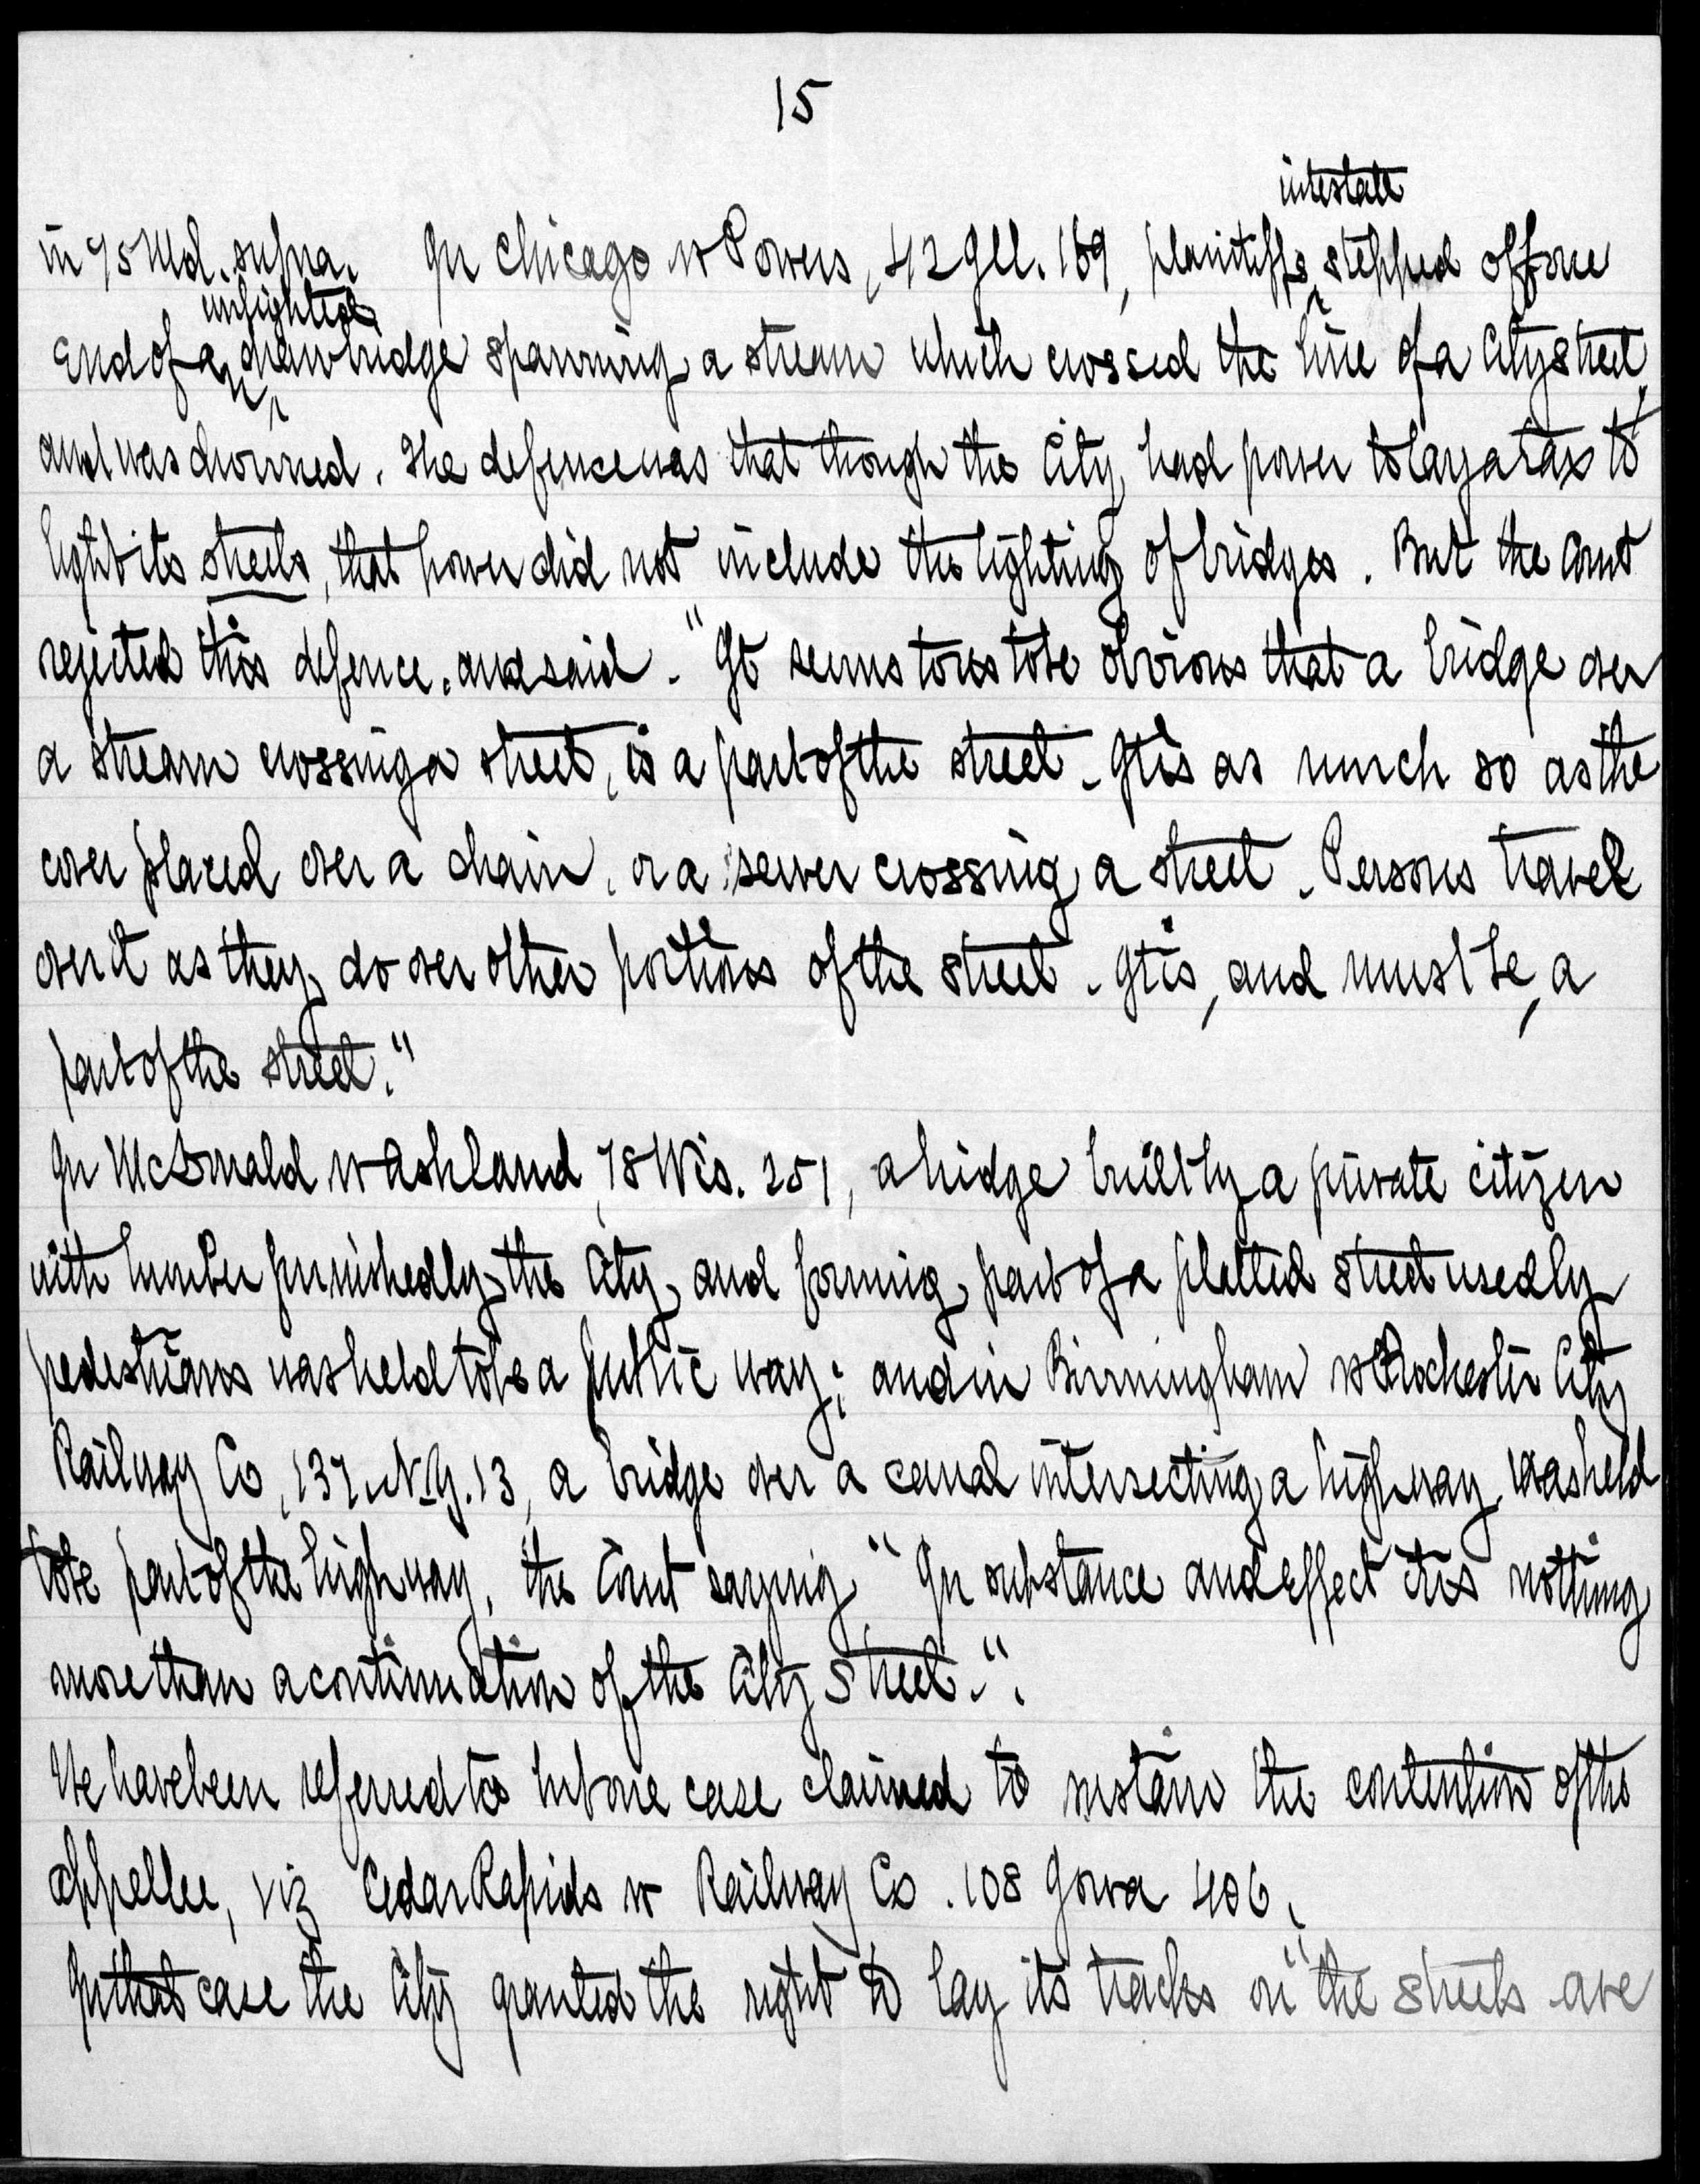 15
intestate
in 95 Md. supra. In Chicago vs Powers, 42 Ill. 169, plaintiffs stepped off one
unlighted
end of an drawbridge spanning a stream which crossed the line of a City street,
and was drowned. The defence was that though the City had power to lay a tax to
light its streets, that power did not include the lighting of bridges. But the Court
rejected this defence, and said - "It seems to us to be obvious that a bridge over
a stream crossing a street, is a part of the street. It is as much so as the
cover placed over a drain, or a sewer crossing a street. Persons travel
over it as they do over other portions of the street. It is, and must be, a
part of the street."
In McDonald vs Ashland, 78 Wis. 251, a bridge built by a private citizen
with lumber furnished by the City and forming part of a platted street used by
pedestrians was held to be a public way; and in Birmingham vs Rochester City
Railway Co, 137 N.Y. 13, a bridge over a canal intersecting a highway was held
to be part of the highway, the Court saying "In substance and effect it is nothing
more than a continuation of the City Street.".
We have been referred to but one case claimed to sustain the contention of the
appellee, viz Cedar Rapids vs Railway Co. 108 Iowa 406.
In that case the City granted the right to lay its tracks on "the streets ave